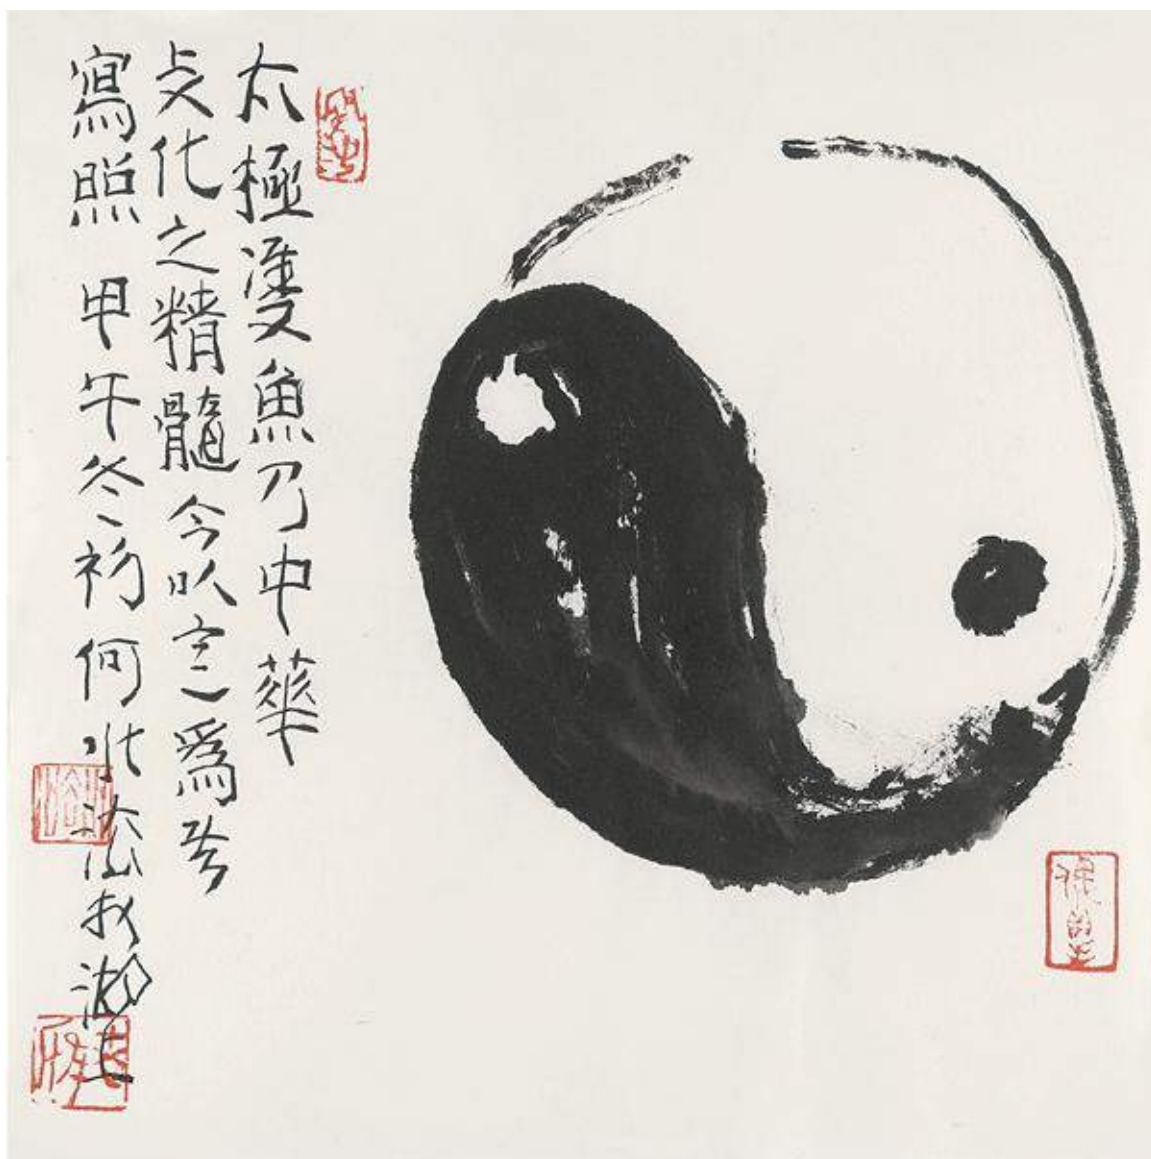 太極雙魚乃中華
文化之精髓今以之爲
寫照 甲午冬初何水法於湖上